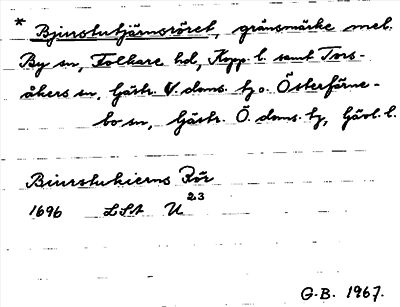 * Bjurstutjärnsröret, gränsmärke mel.
By sn, Folkare hd, Kopp. l. samt Tors-
åkers sn, Gästr. V. doms. tg o. Österfärne-
bo sn, Gästr. Ö. doms. tg, Gävl. l.
Biurstukierns Rör
1696 LSA U 23
G.B. 1967.